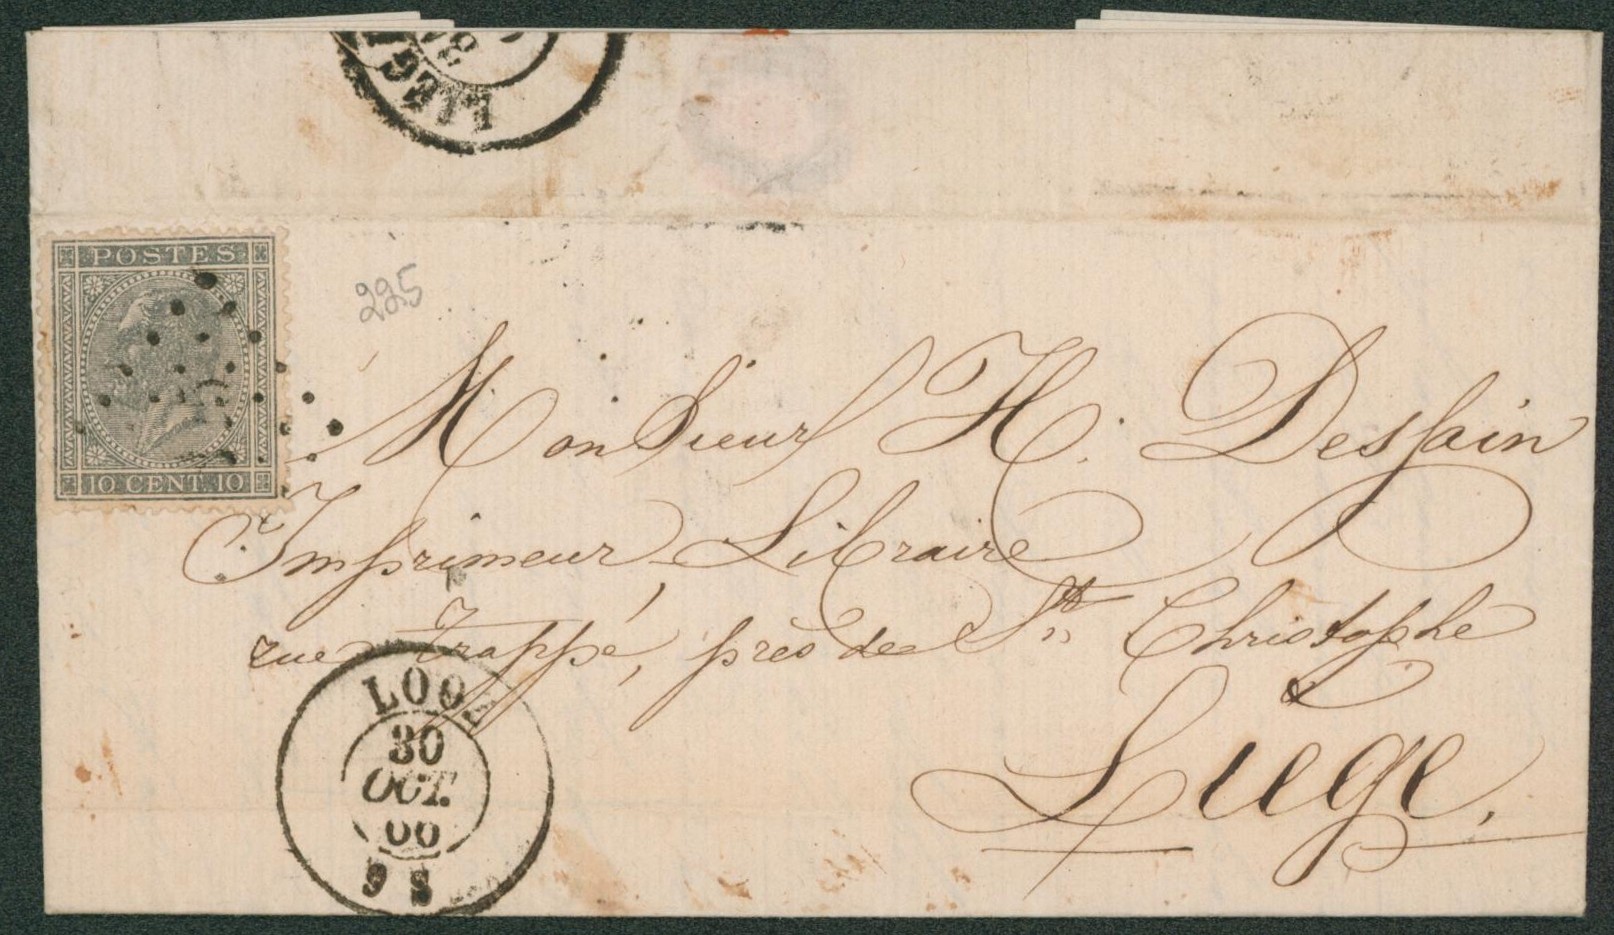 LIEGE
POSTES
10 CENT. 10
225
Monsieur H. Dessain
Imprimeur Libraire
rue Trappé, près de St. Christophe
Liége.
LOOZ
30
OCT.
66
9 S